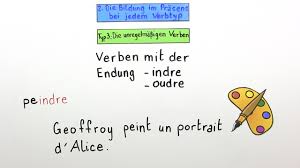 2. Die Bildung im Präsens
bei jedem Verbtyp
Typ 3: Die unregelmäßigen Verben
Verben mit der
Endung - indre
- oudre
peindre
Geoffroy peint un portrait
d'Alice.